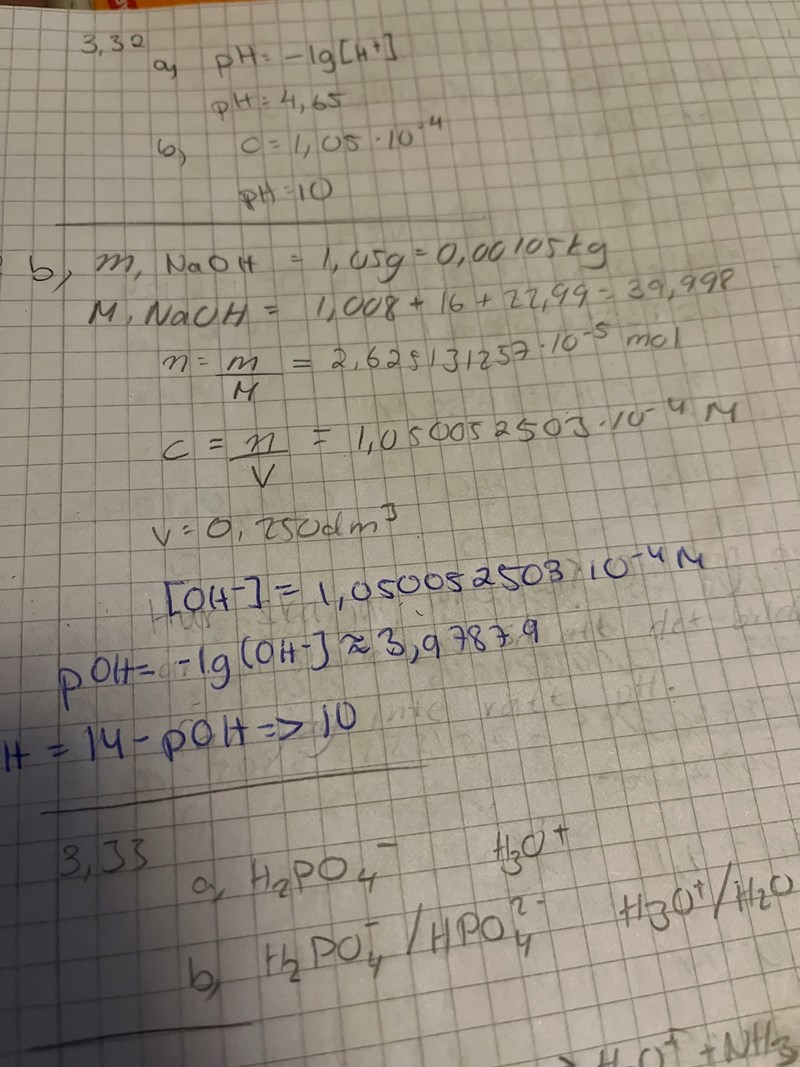 3,32
a, pH = -lg[H+]
pH = 4,65
b, C = 1,05 · 10⁻⁴
pH = 10
b, m, NaOH = 1,05g = 0,00105kg
M, NaOH = 1,008 + 16 + 22,99 = 39,998
n = m/M = 2,625131257 · 10⁻⁵ mol
c = n/V = 1,050052503 · 10⁻⁴ M
V = 0,250dm³
[OH⁻] = 1,050052503 · 10⁻⁴ M
pOH = -lg[OH⁻] ≈ 3,97879
H = 14 - pOH => 10
3,33
a, H₂PO₄⁻ H₃O⁺
b, H₂PO₄⁻/HPO₄²⁻ H₃O⁺/H₂O
H₃O⁺ + NH₃